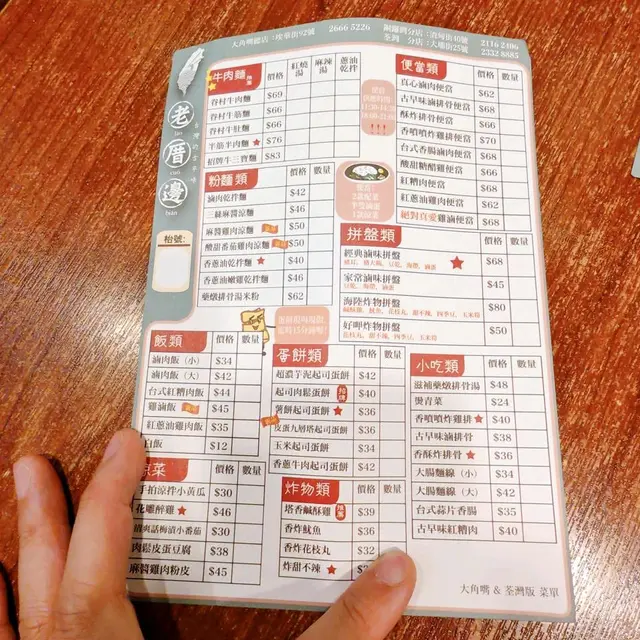 大角嘴總店：埃華街92號 2666 5226
銅鑼灣分店：渣甸街40號 2116 2406
荃灣 分店：大壩街25號 2332 8885
老厝邊
lău
cuò
biān
枱號：
牛肉麵 價格 紅燒湯 麻辣湯 蔥油乾拌
眷村牛肉麵 $69
眷村牛筋麵 $66
眷村牛肚麵 $66
半筋半肉麵 $76
招牌牛三寶麵 $83
粉麵類 價格 數量
滷肉乾拌麵 $42
三絲麻醬涼麵 $46
麻醬雞肉涼麵 $50
酸甜番茄雞肉涼麵 $50
香蔥油乾拌麵 $40
香蔥油嫩雞乾拌麵 $46
藥燉排骨湯米粉 $62
便當類 價格 數量
真心滷肉便當 $62
古早味滷排骨便當 $68
酥炸排骨便當 $66
香噴噴炸雞排便當 $70
台式香腸滷肉便當 $68
酸甜糖醋雞便當 $66
紅糟肉便當 $68
紅蔥油雞肉便當 $68
絕對真愛雞滷便當 $68
拼盤類 價格 數量
經典滷味拼盤 $68
家常滷味拼盤 $45
豆乾、海帶、滷蛋
海陸炸物拼盤 $80
好呷炸物拼盤 $50
花枝丸、甜不辣、四季豆、玉米筍
飯類 價格 數量
滷肉飯（小） $34
滷肉飯（大） $42
台式紅糟肉飯 $44
雞滷飯 $45
紅蔥油雞肉飯 $35
白飯 $12
蛋餅類 價格 數量
超濃芋泥起司蛋餅 $42
起司肉鬆蛋餅 招牌 $40
薯餅起司蛋餅 $36
皮蛋九層塔起司蛋餅 $40
玉米起司蛋餅 $34
香蔥牛肉起司蛋餅 $42
小吃類 價格 數量
滋補藥燉排骨湯 $48
燙青菜 $24
香噴噴炸雞排 $40
古早味滷排骨 $38
香酥炸排骨 $36
大腸麵線（小） $34
大腸麵線（大） $42
台式蒜片香腸 $35
古早味紅糟肉 $40
涼菜 價格 數量
手拍涼拌小黃瓜 $30
花雕醉雞 $46
清爽話梅漬小番茄 $30
肉鬆皮蛋豆腐 $38
麻醬雞肉粉皮 $45
炸物類 價格 數量
塔香鹹酥雞 $39
香炸魷魚 $36
香炸花枝丸 $32
炸甜不辣 $3
大角嘴 & 荃灣版 菜單